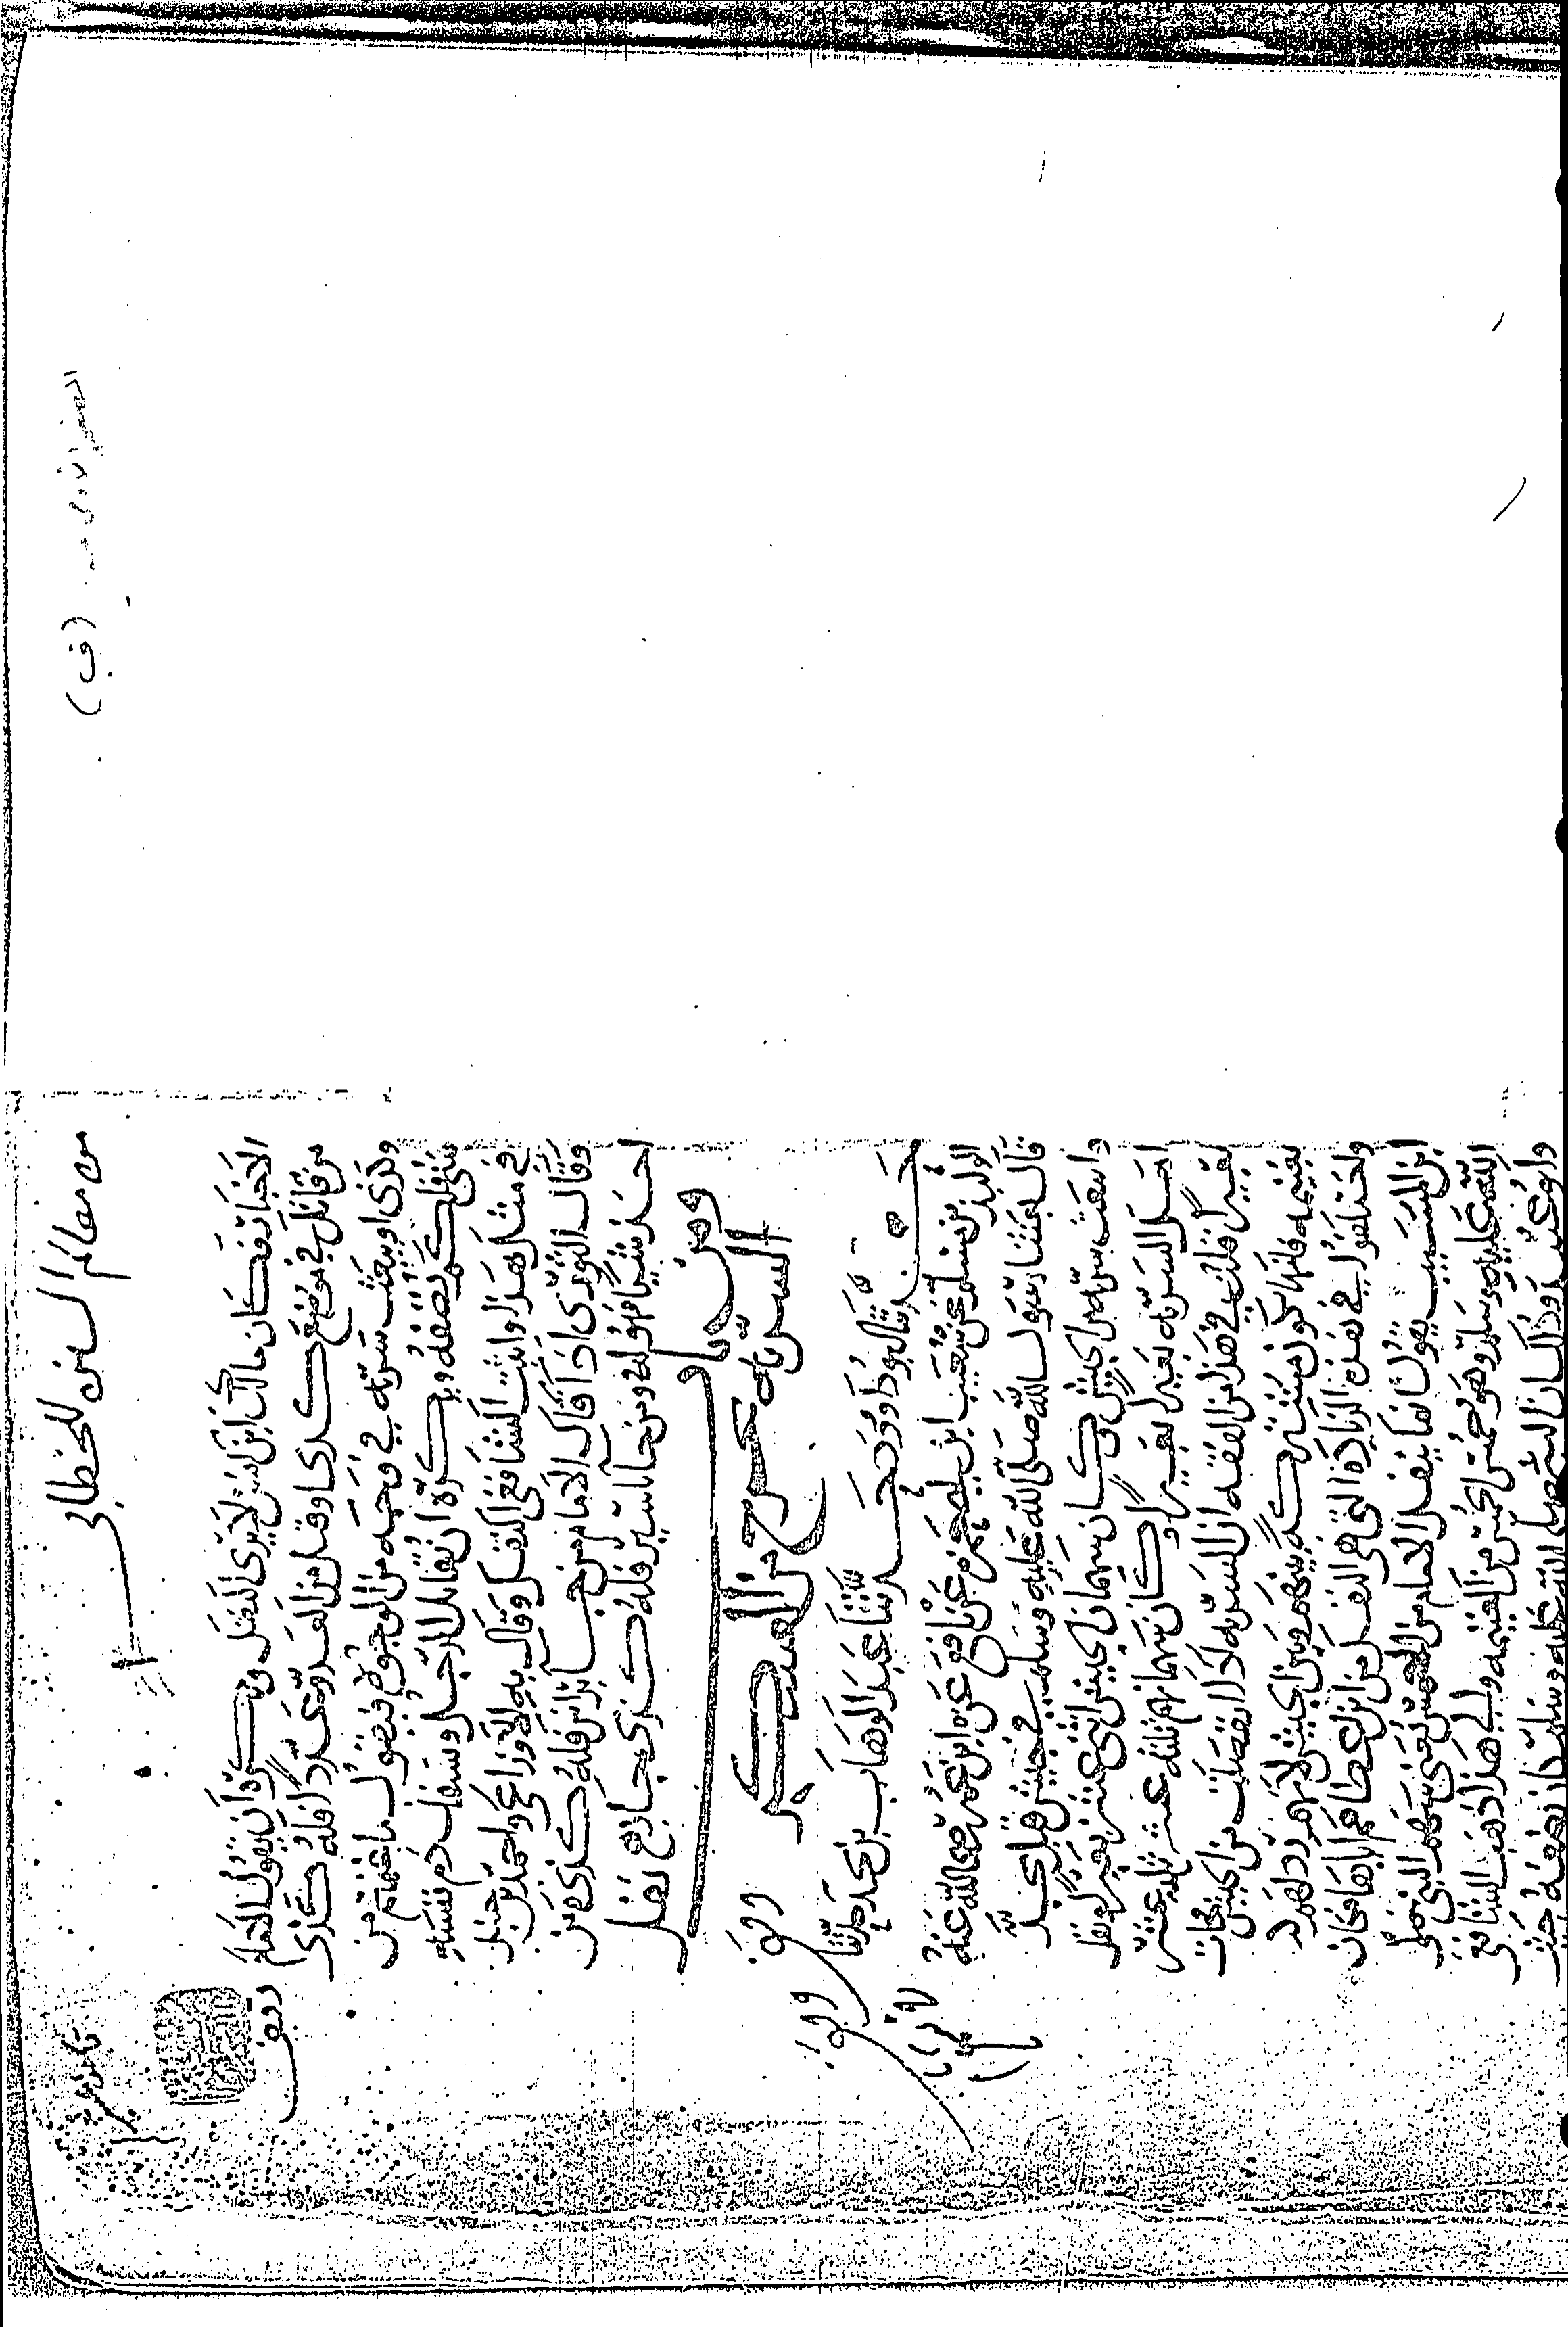 من معالم السنن للخطابي
الصفحة الأولى من (ف)
وقف
الأخبار فكان مالك ابن أنس لا يرى النفل ويكره أن يقول الإمام
من قاتل في موضع كذى أو قتل من العدو عددا فله كذى
وكذى أو يبعث سرية في وجه من الوجوه فيقول ما غنمتم من
شيء فلكم نصفه ويكره أن يقاتل الرجل ويسفك دم نفسه
في مثل هذا وأثبت الشافعي النفل وقال به الأوزاعي وأحمد بن حنبل
وقال الثوري إذا قال الإمام من جاء برأس فله كذى ومن
أخذ شيئا فهو له ومن جاء بأسير فله كذى جاز مع نفل
ومن باب
السرية تخرج من العسكر
قال أبو داود حدثنا عبد الوهاب بن نجدة حدثنا
الوليد بن مسلم عن شعيب ابن أبي حمزة عن نافع عن ابن عمر رضي الله عنه
قال بعثنا رسول الله صلى الله عليه وسلم في جيش قبل نجد
وانبعث سرية من الجيش وكان سهمان الجيش اثني عشر بعيرا ونفل
أهل السرية بعيرا بعيرا وكان سهمانهم ثلثة عشر ثلثة عشر
بعيرا قلت في هذا من الفقه أن السرية إذا انفصلت من الجيش فجاءت
بغنيمة فإنها تكون مشتركة بينهم وبين الجيش لأنهم ردء لهم
واختلفوا في هذه الزيادة التي هي النفل من أين أعطاهم إياها فكان
ابن المسيب يقول إنما ينفل الإمام من الخمس يعني سهم النبي صلى
الله عليه وسلم وهو خمس الخمس من الغنيمة وإلى هذا ذهب الشافعي
وأبو عبيد وذاك أن النبي صلى الله عليه وسلم كان يضعه حيث